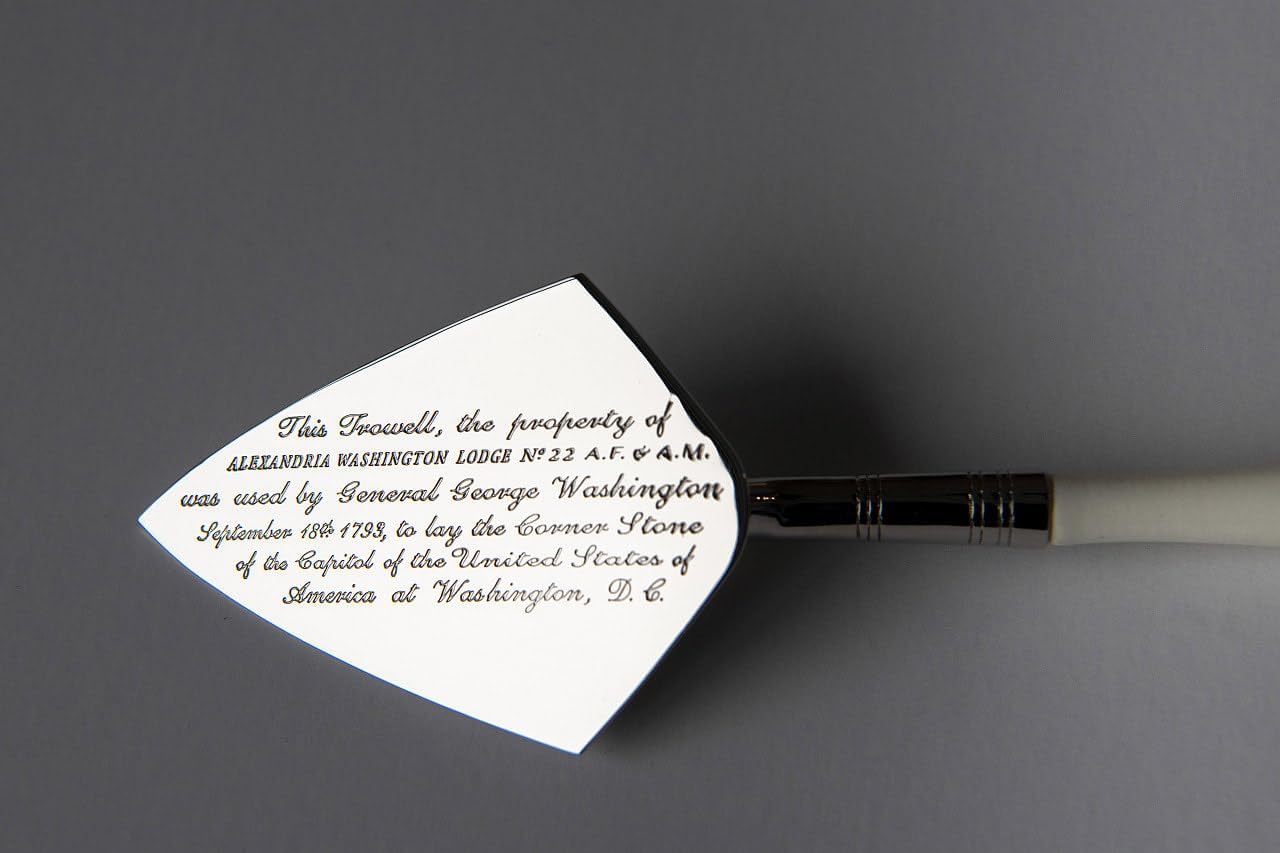 This Trowell, the property of
ALEXANDRIA WASHINGTON LODGE Nº 22 A.F. & A.M.
was used by General George Washington
September 18th 1793, to lay the Corner Stone
of the Capitol of the United States of
America at Washington, D. C.